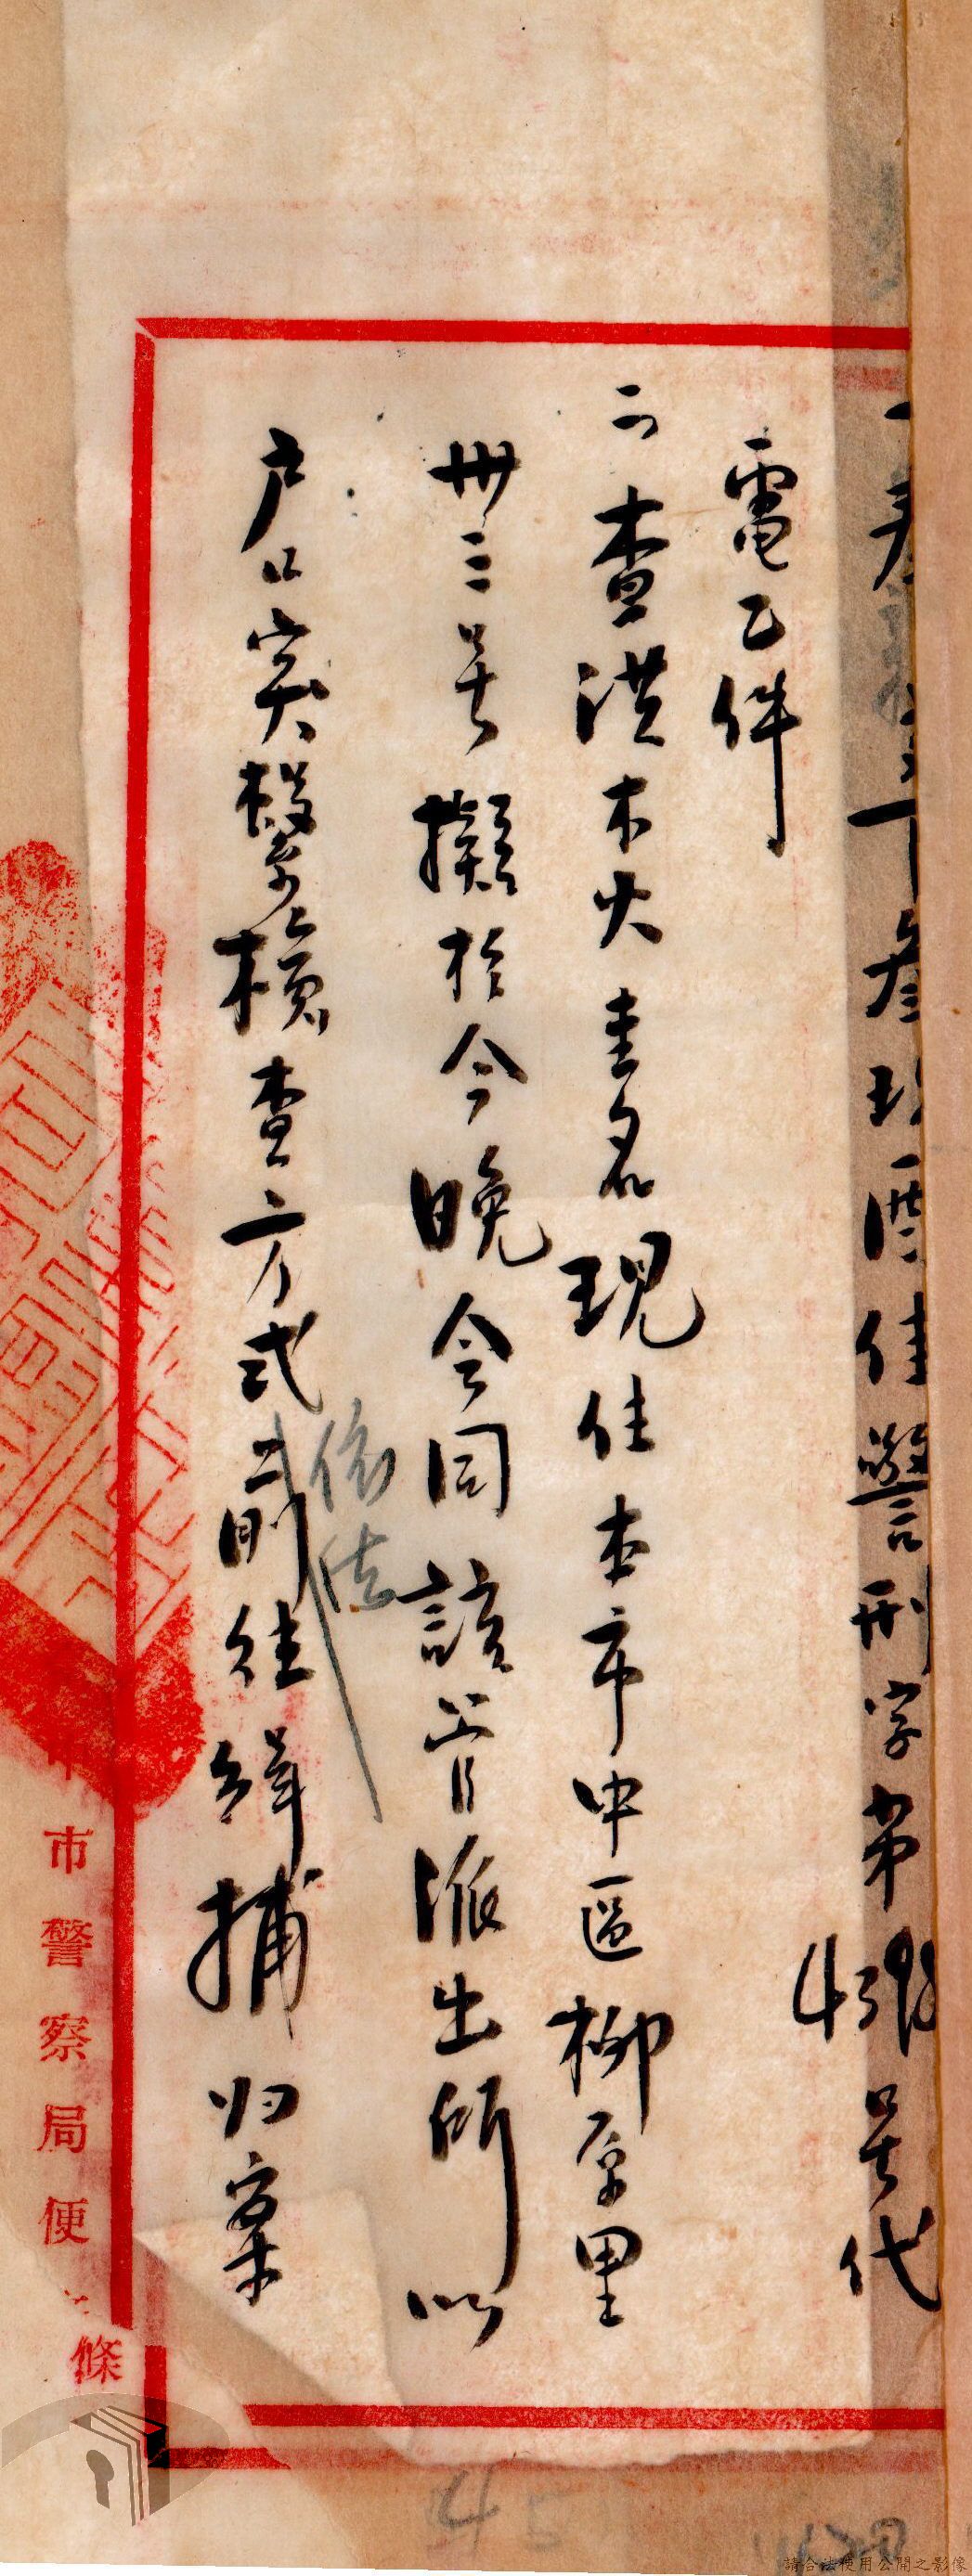 警刑字第號代
電乙件
二、查洪木火其名現住本市中區柳原里
卅三號擬於今晚會同該管派出所以
戶口突擊檢查方式前往緝捕归案
依法
市警察局便條
45
請合法使用公開之影像